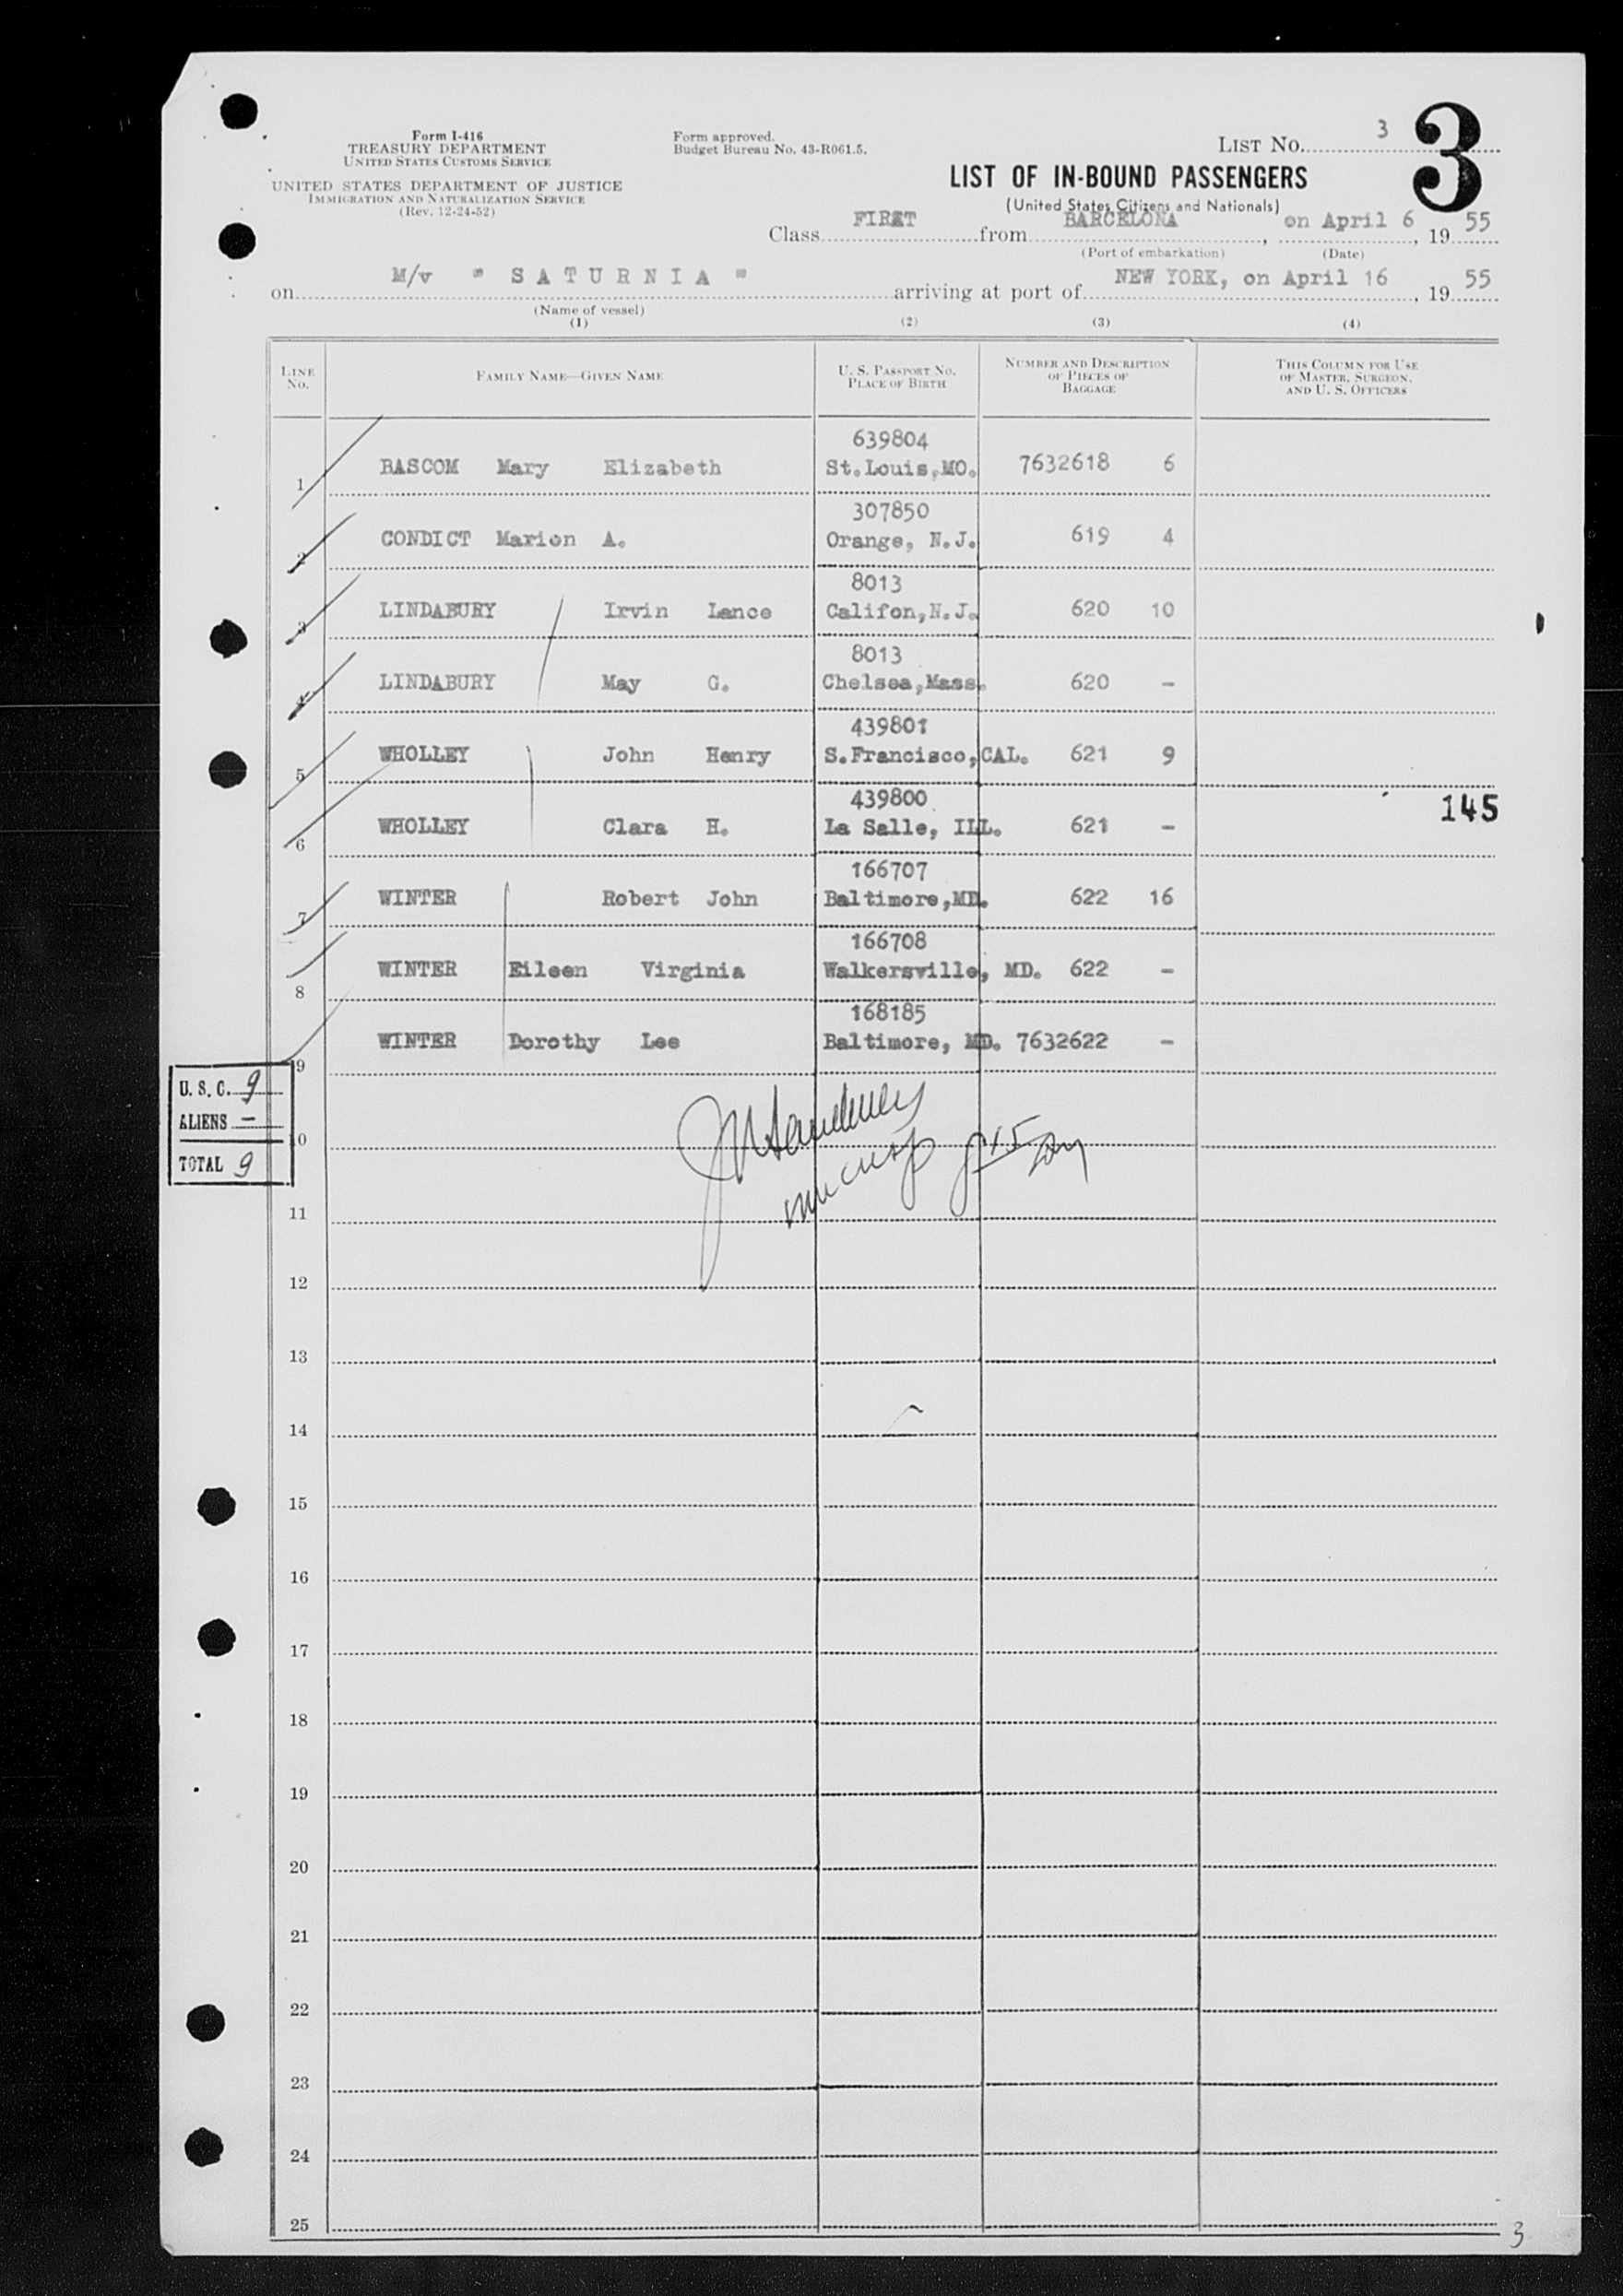 Form I-416
TREASURY DEPARTMENT
UNITED STATES CUSTOMS SERVICE
UNITED STATES DEPARTMENT OF JUSTICE
IMMIGRATION AND NATURALIZATION SERVICE
(Rev. 12-24-52)
Form approved.
Budget Bureau No. 43-R061.5.
LIST No. 3
3
LIST OF IN-BOUND PASSENGERS
(United States Citizens and Nationals)
Class FIRST from BARCELONA, on April 6, 19 55
(Port of embarkation) (Date)
on M/v " S A T U R N I A " arriving at port of NEW YORK, on April 16, 19 55
(Name of vessel)
(1) (2) (3) (4)
LINE No. FAMILY NAME—GIVEN NAME U. S. PASSPORT NO. PLACE OF BIRTH NUMBER AND DESCRIPTION OF PIECES OF BAGGAGE THIS COLUMN FOR USE OF MASTER, SURGEON, AND U. S. OFFICERS
639804
1 BASCOM Mary Elizabeth St.Louis,MO. 7632618 6
307850
2 CONDICT Marion A. Orange, N.J. 619 4
8013
3 LINDABURY Irvin Lance Califon,N.J. 620 10
8013
4 LINDABURY May G. Chelsea,Mass. 620 -
439801
5 WHOLLEY John Henry S.Francisco,CAL. 621 9
439800 145
6 WHOLLEY Clara H. La Salle, ILL. 621 -
166707
7 WINTER Robert John Baltimore,MD. 622 16
166708
8 WINTER Eileen Virginia Walkersville, MD. 622 -
168185
9 WINTER Dorothy Lee Baltimore, MD. 7632622 -
U. S. C. 9
ALIENS —
TOTAL 9
10
11
12
13
14
15
16
17
18
19
20
21
22
23
24
25
3